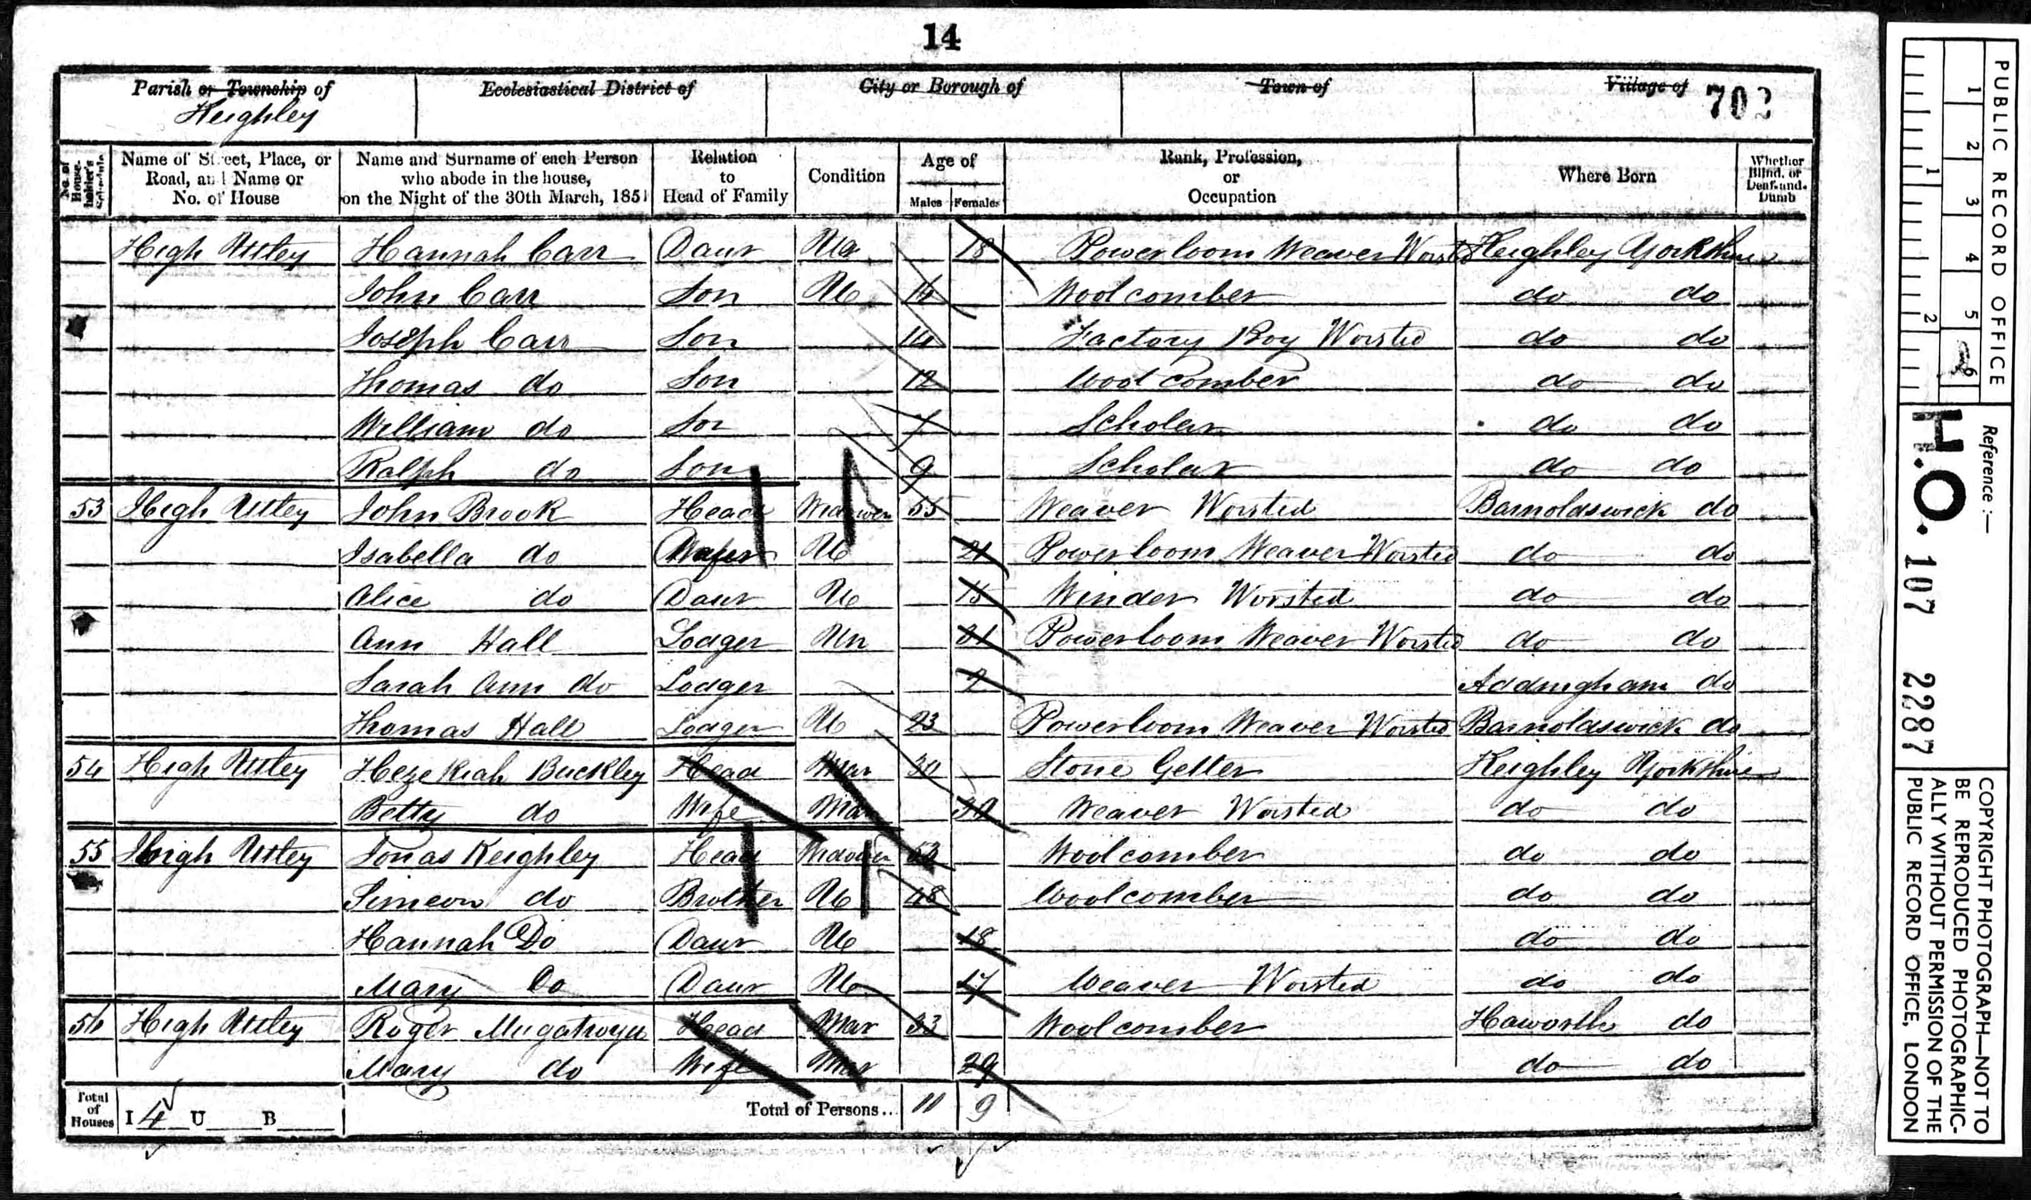 14
Parish or Township of Keighley Ecclesiastical District of City or Borough of Town of Village of 702
No. of House-holder's Schedule Name of Street, Place, or Road, and Name or No. of House Name and Surname of each Person who abode in the house, on the Night of the 30th March, 1851 Relation to Head of Family Condition Age of Males Females Rank, Profession, or Occupation Where Born Whether Blind, or Deaf-and-Dumb
High Utley Hannah Carr Daur Un 18 Powerloom Weaver Worsted Keighley Yorkshire
John Carr Son U Woolcomber do do
Joseph Carr Son 14 Factory Boy Worsted do do
Thomas do Son 12 Wool comber do do
William do Son 7 Scholar do do
Ralph do Son 9 Scholar do do
53 High Utley John Brook Head Widower 55 Weaver Worsted Barnoldswick do
Isabella do U 21 Powerloom Weaver Worsted do do
Alice do Daur U 15 Winder Worsted do do
Ann Hall Lodger Un 31 Powerloom Weaver Worsted do do
Sarah Ann do Lodger Addingham do
Thomas Hall Lodger U 23 Powerloom Weaver Worsted Barnoldswick do
54 High Utley Hezekiah Buckley Head Mar Stone Getter Keighley Yorkshire
Betty do Wife Mar Weaver Worsted do do
55 High Utley Jonas Keighley Head Widower Woolcomber do do
Simeon do Brother U 48 Woolcomber do do
Hannah Do Daur U 18 do do
Mary Do Daur U 17 Weaver Worsted do do
56 High Utley Roger Mugatroyd Head Mar 33 Woolcomber Haworth do
Mary do Wife Mar 29 do do
Total of Houses I 4 U B Total of Persons... 11 9
PUBLIC RECORD OFFICE
1 2 3 4 5 6
1 2
Reference :—
H.O. 107 2287
COPYRIGHT PHOTOGRAPH—NOT TO
BE REPRODUCED PHOTOGRAPHIC-
ALLY WITHOUT PERMISSION OF THE
PUBLIC RECORD OFFICE, LONDON